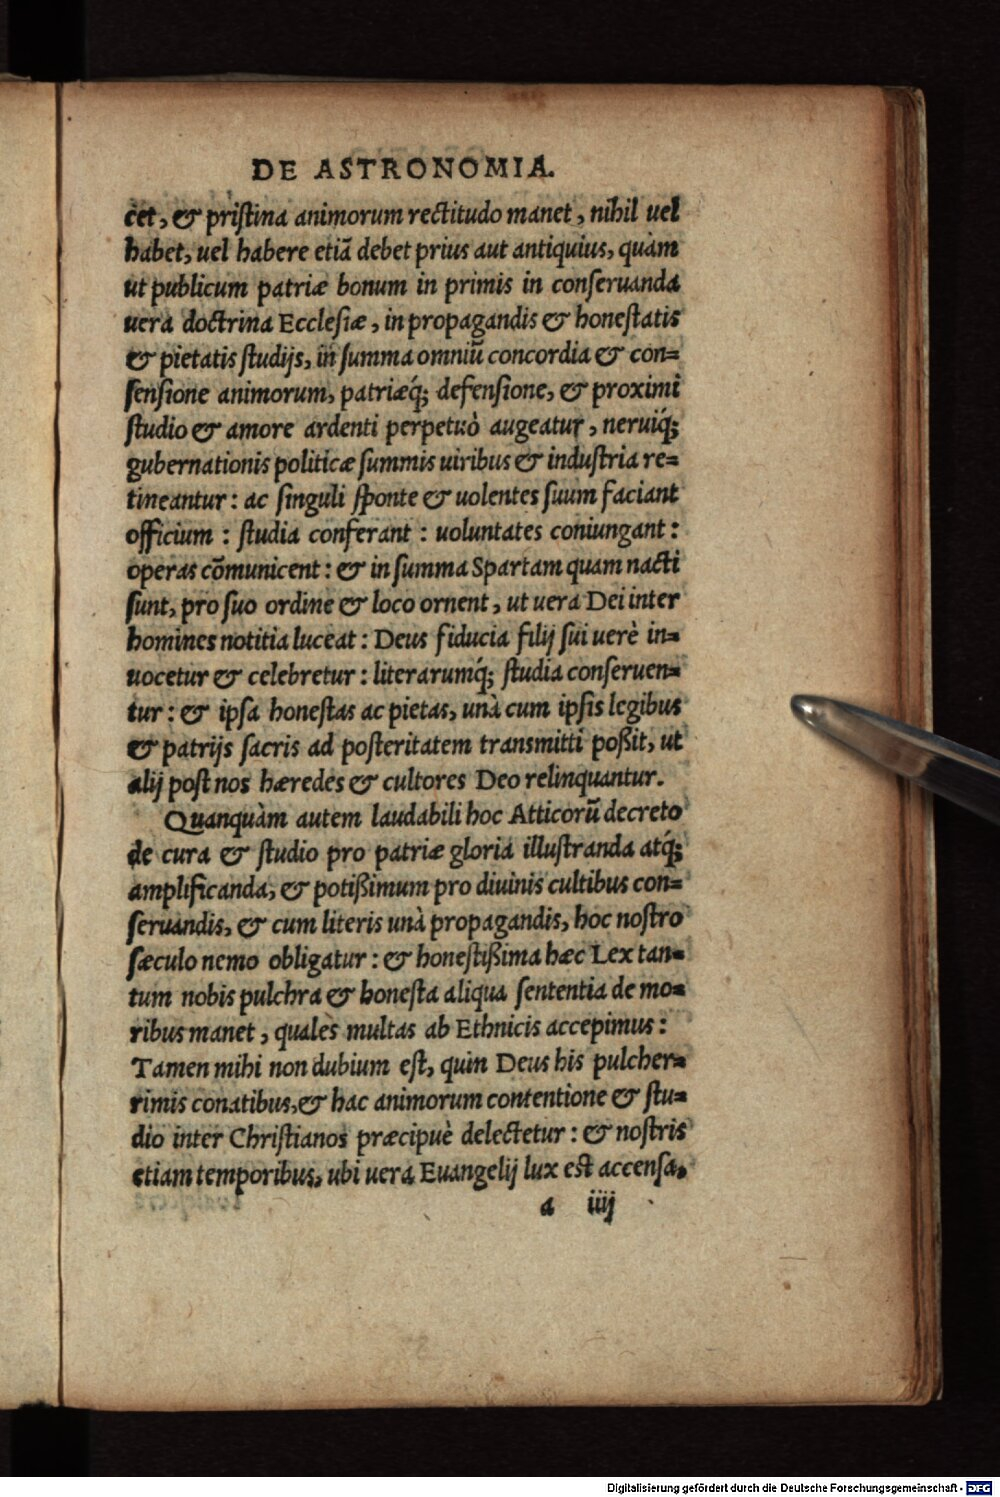 DE ASTRONOMIA.
cet, & pristina animorum rectitudo manet, nihil uel
habet, uel habere etiã debet prius aut antiquius, quàm
ut publicum patriæ bonum in primis in conseruanda
uera doctrina Ecclesiæ, in propagandis & honestatis
& pietatis studijs, in summa omniũ concordia & con=
sensione animorum, patriæq́; defensione, & proximi
studio & amore ardenti perpetuò augeatur, neruiq́;
gubernationis politicæ summis uiribus & industria re=
tineantur: ac singuli sponte & uolentes suum faciant
officium: studia conferant: uoluntates coniungant:
operas cõmunicent: & in summa Spartam quam nacti
sunt, pro suo ordine & loco ornent, ut uera Dei inter
homines notitia luceat: Deus fiducia filij sui uerè in=
uocetur & celebretur: literarumq́; studia conseruen=
tur: & ipsa honestas ac pietas, unà cum ipsis legibus
& patrijs sacris ad posteritatem transmitti poßit, ut
alij post nos hæredes & cultores Deo relinquantur.
Quanquàm autem laudabili hoc Atticorũ decreto
de cura & studio pro patriæ gloria illustranda atq́;
amplificanda, & potißimum pro diuinis cultibus con=
seruandis, & cum literis unà propagandis, hoc nostro
sæculo nemo obligatur: & honestißima hæc Lex tan=
tum nobis pulchra & honesta aliqua sententia de mo=
ribus manet, quales multas ab Ethnicis accepimus:
Tamen mihi non dubium est, quin Deus his pulcher=
rimis conatibus, & hac animorum contentione & stu=
dio inter Christianos præcipuè delectetur: & nostris
etiam temporibus, ubi uera Euangelij lux est accensa,
a iiij
Digitalisierung gefördert durch die Deutsche Forschungsgemeinschaft - DFG